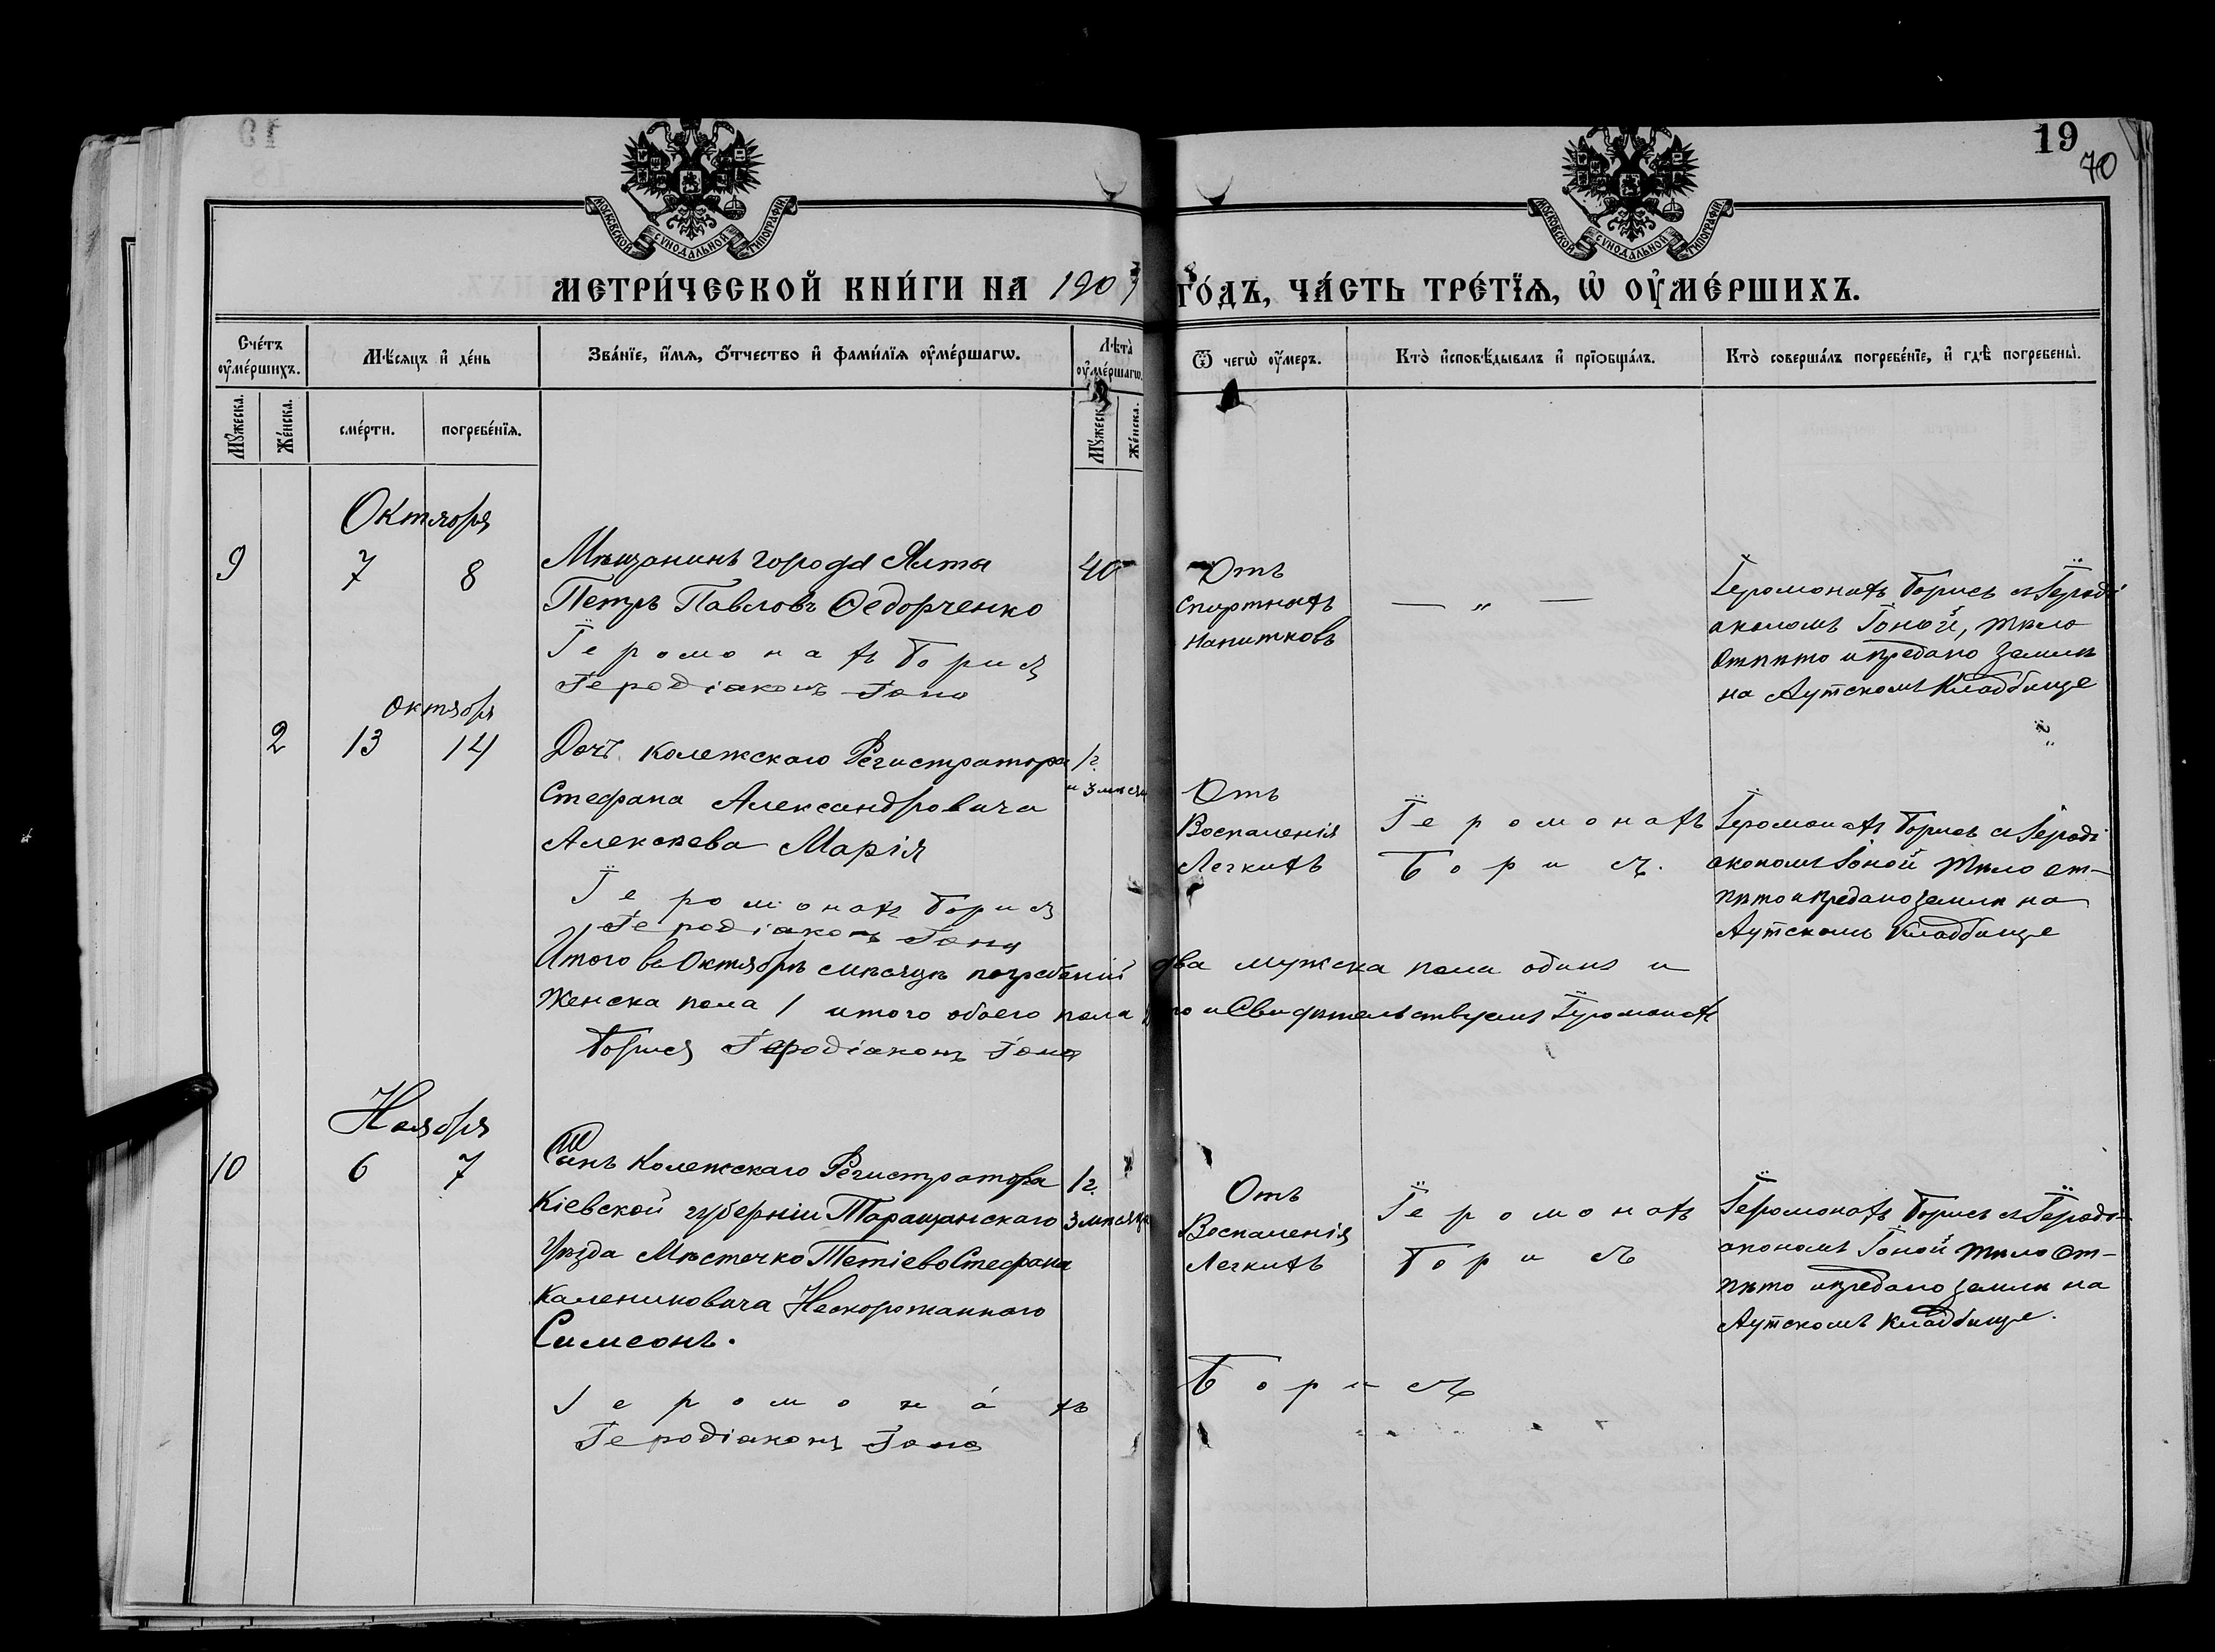 19
70
МОСКОВСКОЙ СѴНОДАЛЬНОЙ ТИПОГРАФІИ
МОСКОВСКОЙ СѴНОДАЛЬНОЙ ТИПОГРАФІИ
МЕТРИ́ЧЕСКОЙ КНИ́ГИ НА 190 ГО́ДЪ, ЧА́СТЬ ТРЕ́ТЇѦ, Ѡ҆ ОУ҆МЕ́РШИХЪ.
Сче́тъ оу҆ме́ршихъ.
Мѣ́сяцъ и҆ де́нь
Зва́нїе, и҆́мѧ, ѻ҆́тчество и҆ фами́лїѧ оу҆ме́ршагѡ.
Лѣта̀ оу҆ме́ршагѡ.
Ѿ чегѡ̀ оу҆́меръ.
Кто̀ и҆сповѣ́дывалъ и҆ прїѡбща́лъ.
Кто̀ соверша́лъ погребе́нїе, и҆ гдѣ̀ погребены̀.
Мꙋ́жеска.
Же́нска.
сме́рти.
погребе́нїѧ.
Мꙋ́жеск
Же́нска.
Октября
9 7 8
Мѣщанинъ города Ялты
Петръ Павловъ Ѳедорченко
Іеромонахъ Борисъ
Іеродіаконъ Іона
40
Отъ
Спиртныхъ
напитковъ
— „ —
Іеромонахъ Борисъ съ Іероді
акономъ Іоной, тѣло
отпѣто и предано землѣ
на Аутскомъ Кладбище
Октября
2 13 14
Дочь Колежскаго Регистратора
Стефана Александровича
Алексѣева Марія
Іеромонахъ Борисъ
Іеродіаконъ Іона
1 г.
и 3 мѣсяц
Отъ
Воспаленія
Легкихъ
Іеромонахъ
Борисъ.
Іеромонахъ Борисъ съ Іероді
акономъ Іоной тѣло от-
пѣто и предано землѣ на
Аутскомъ Кладбище
Итого въ Октябрѣ мѣсяцѣ погребеній два мужска пола одинъ и
Женска пола 1 итого обоего пола Свидѣтельствуемъ Іеромонахъ
Борисъ Іеродіаконъ Іона
Ноября
10 6 7
Сынъ Колежскаго Регистратора
Кіевской губерніи Таращанскаго
Уѣзда Мѣстечко Тетіево Стефана
Калениковича Нескорожаннаго
Симеонъ.
Іеромонахъ Борисъ
Іеродіаконъ Іона
1 г.
3 мѣсяца
Отъ
Воспаленія
Легкихъ
Іеромонахъ
Борисъ
Іеромонахъ Борисъ съ Іероді-
акономъ Іоной тѣло от-
пѣто и предано землѣ на
Аутскомъ Кладбище.